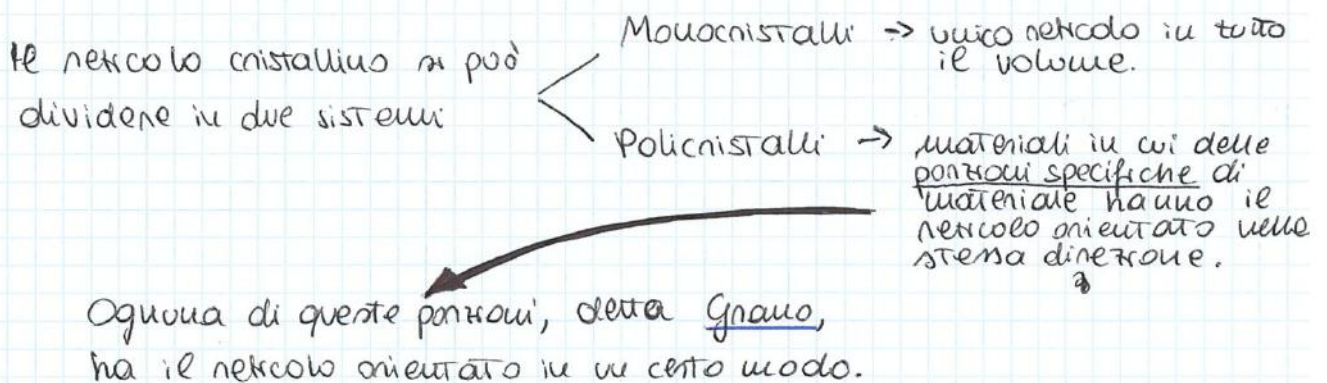 Il reticolo cristallino si può
dividere in due sistemi
Monocristalli → unico reticolo in tutto
il volume.
Policristalli → materiali in cui delle
porzioni specifiche di
materiale hanno il
reticolo orientato nella
stessa direzione.
Ognuna di queste porzioni, detta Grano,
ha il reticolo orientato in un certo modo.